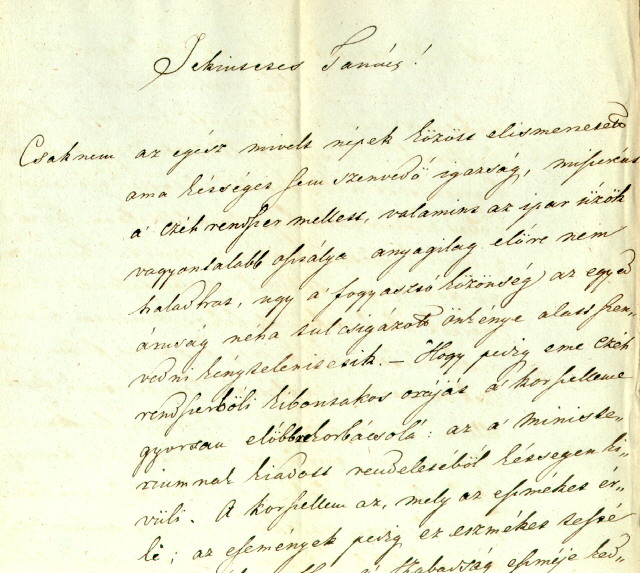 Tekintetes Tanács!
Csaknem az egész mivelt népek között elismertetett
ama kétséget sem szenvedő igazság, miszerént
a' czéh rendszer mellett, valamint az ipar űzők
vagyontalabb osztálya anyagilag előre nem
haladhat, ugy a' fogyasztó közönség az egyed
áruság néha tulcsigázott önkénye alatt szen„
vedni kénytelenittetik. – Hogy pedig eme czéh
rendszerbőli kibontakozás óráját a' korszellem
gyorsan előbbre korbácsolá: az a' ministe„
riumnak kiadott rendeletéből kétségen ki„
vüli. A korszellem az, mely az eszméket ér„
leli; az események pedig ez eszméket testté
Szabadság eszméje ked„